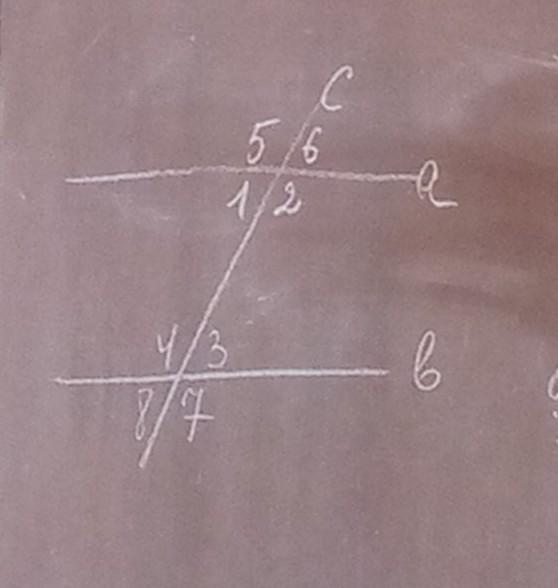 c
5 6
a
1 2
4 3
в
8 7